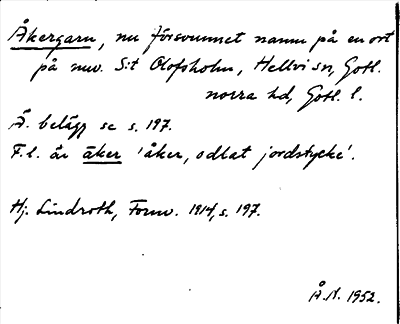 Åkergarn, nu försvunnet namn på en ort
på nuv. S:t Olofsholm, Hellvi sn, Gotl.
norra hd, Gotl. l.
Ä. belägg se s. 197.
F.l. är åker 'åker, odlat jordstycke'.
Hj. Lindroth, Fornv. 1914, s. 197.
Å.N. 1952.